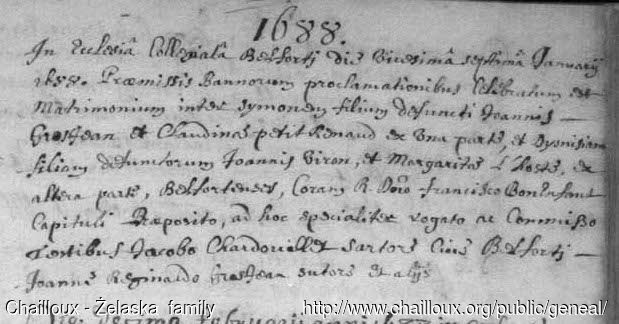 1688.
In Ecclesiâ Collegiatâ Belforti die Vicesimâ septimâ Januarij
1688. Præmissis Bannorum proclamationibus Celebratum est
Matrimonium inter symonem filium defuncti Joannis
GrosJean et Claudinæ petit Renaud ex Una parte, et Dyonisiam
filiam defunctorum Joannis Viron, et Margaritæ L'hoste, ex
altera parte, Belfortenses, Coram R. Dno Francisco BonEnfant
Capituli Præposito, ad hoc specialiter rogato ac Commisso
Testibus Jacobo Chardoüillet Sartore Cive Belforti
Joanne Reginaldo GrosJean sutore et alijs
Chailloux - Żelaska family http://www.chailloux.org/public/geneal/